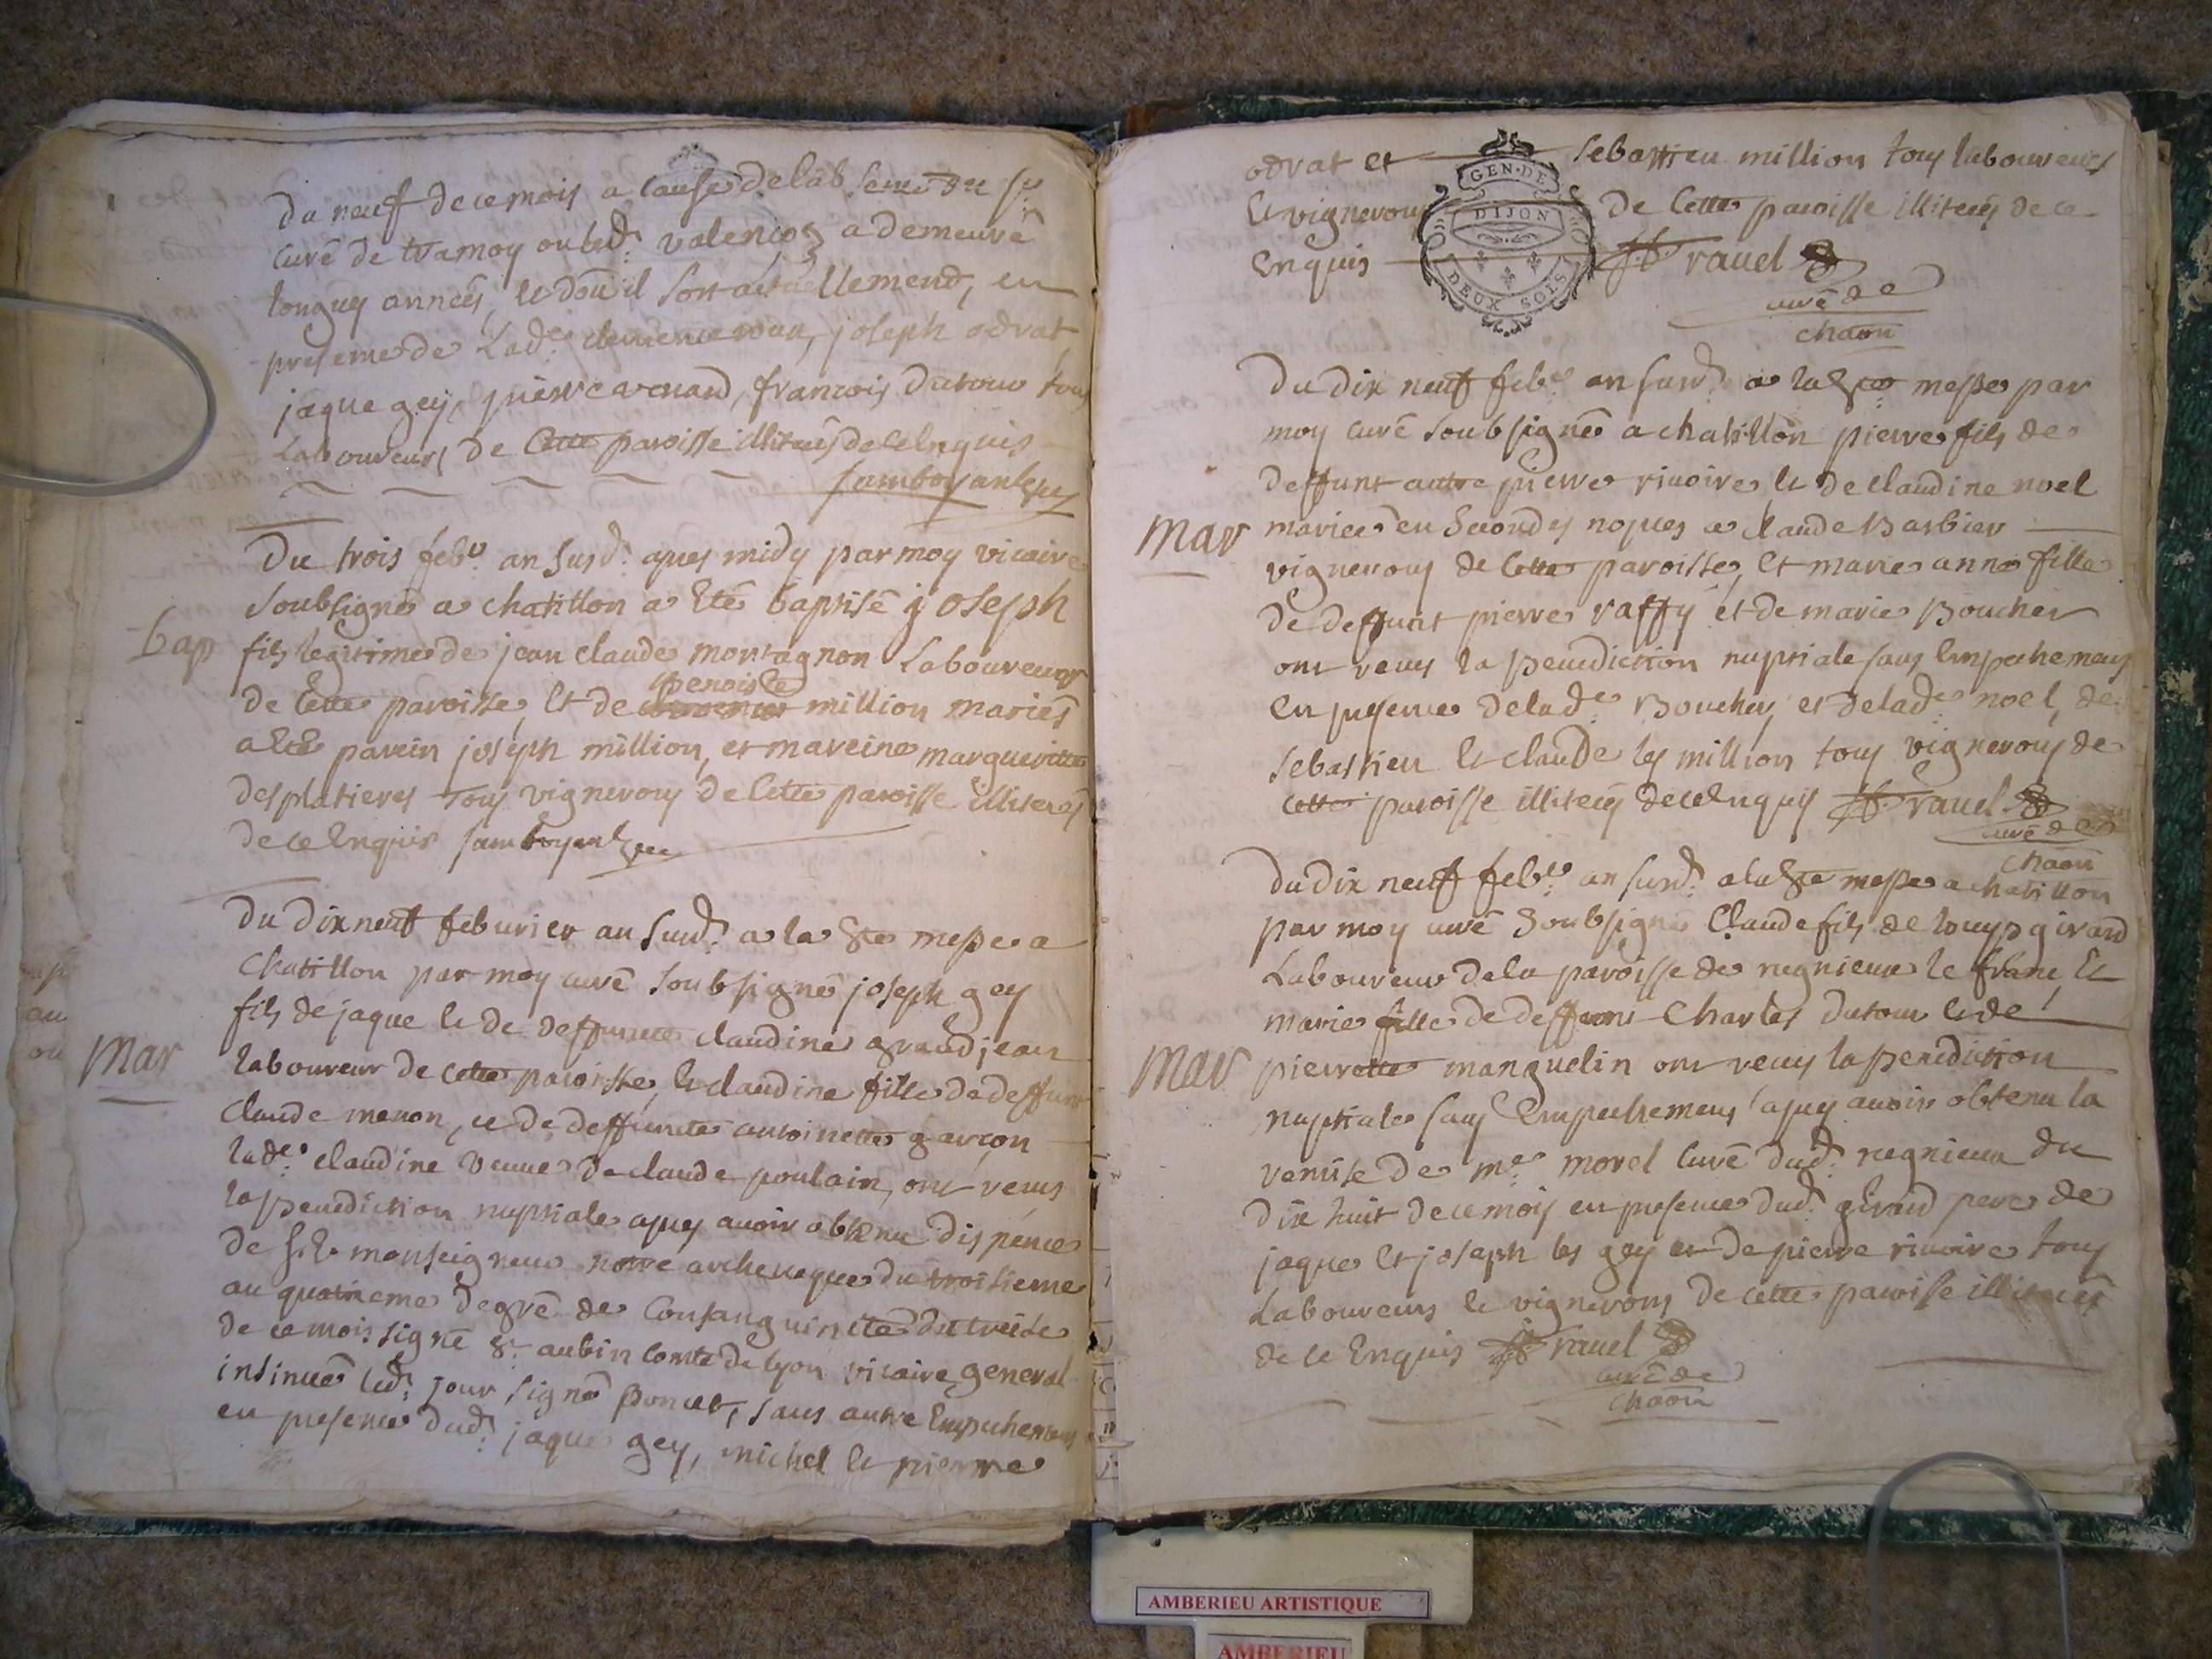 du neuf de ce mois a cause de labsence du sr
curé de tramoy ou led. valencog a demeuré
longues années, et dou il sort actuellement, en
presence de Lade clemence odrat, joseph odrat
jaque gey, pierre avenard, francois dutour tous
Laboureurs de Cette paroisse illiterés de ce Enquis
Samboyant
Du trois febr. an susd. apres midy par moy vicaire
soubsigné a chatillon a Eté baptisé joseph
bap
fils legitime de jean claude montagnon Laboureur
benoiste
de Cette paroisse, Et de million mariés
a Eté parein joseph million, et mareine margueritte
desplatieres tous vignerons de Cette paroisse illiterés
de ce Enquis Samboyant
Du dix neuf feburier an susd. a la Ste messe a
Chatillon par moy curé soubsigné joseph gey
fils de jaque Et de deffuncte claudine grandjean
Mar
laboureur de cette paroisse, Et claudine fille de deffunt
Claude menon, et de deffuncte antoinette garcon
lade. claudine veuve de claude poulain, ont receus
la Benediction nuptiale apres avoir obtenu dispence
de S. E. monseigneur notre archeveque du troisieme
au quatrieme degré de Consanguinité du treise
de ce mois signé St. aubin comte de lyon vicaire general
insinuée led. jour signé poncet, sans autre Empechement
en presence dud. jaque gey, michel Et pierre
odrat et sebastien million tous laboureurs
Et vignerons de Cette paroisse illiterés de ce
Enquis ravel
GEN. DE
DIJON
DEUX SOLS
curé de
chaon
Du dix neuf febr. an susd. a la Ste messe par
moy curé soubsigné a chatillon pierre fils de
deffunt autre pierre rivoire, Et de claudine noel
Mar
mariée en secondes nopces a claude Barbier
vignerons de Cette paroisse, Et marie anne fille
de deffunt pierre raffy et de marie Boucher
ont receus la Benediction nuptiale sans Empechemens
en presence de lade. Boucher, et de lade. noel, de
sebastien Et claude les million tous vignerons de
cette paroisse illiterés de ce Enquis ravel
curé de
chaon
du dix neuf febr. an susd. a la Ste messe a chatillon
par moy curé soubsigné Claude fils de louys girard
Laboureur de la paroisse de regnieux le franc, Et
marie fille de deffunt Charles dutour Et de
Mar
pierrette manguelin ont receus la Benediction
nuptiale sans Empechemens apres avoir obtenu la
remise de mre morel curé dud. regnieux du
dix huit de ce mois en presence dud. girard pere de
jaque Et joseph les gey et de pierre rivoire tous
Laboureurs Et vignerons de cette paroisse illiterés
de ce Enquis ravel
curé de
chaon
AMBERIEU ARTISTIQUE
AMBERIEU